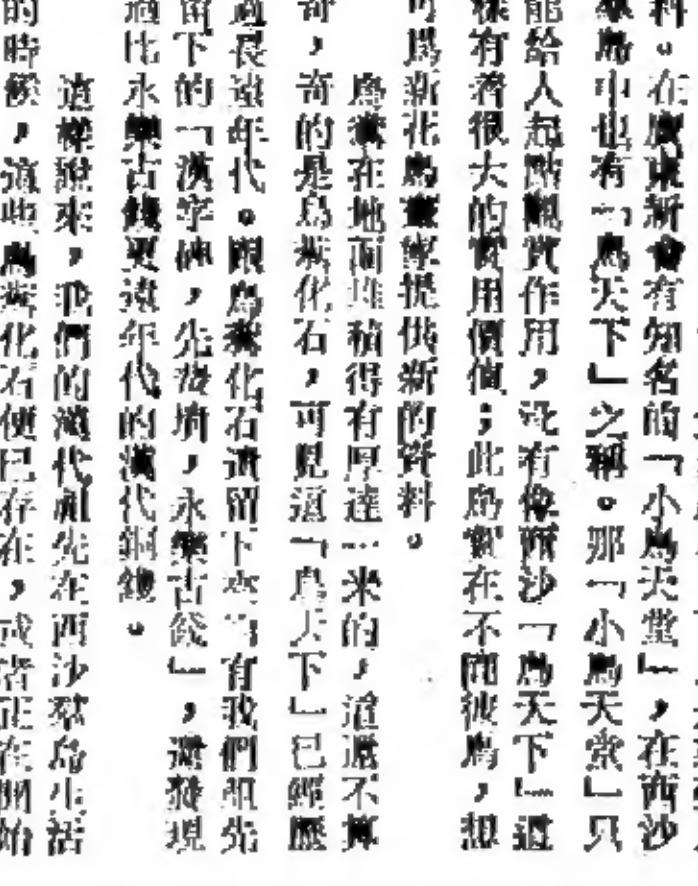 料。在廣東新會有知名的「小鳥天堂」，在西沙
島中也有「鳥天下」之稱。那「小鳥天堂」只
能給人起點觀賞作用，沒有像西沙「鳥天下」這
樣有着很大的實用價值；此鳥實在不同彼鳥，想
可爲新花鳥畫家提供新的資料。
鳥糞在地面堆積得有厚達一米的，這還不算
奇，奇的是鳥糞化石，可見這「鳥天下」已經歷
過長遠年代。跟鳥糞化石遺留下來的有我們祖先
留下的「漢字碑，先人墳，永樂古錢」，還發現
過比永樂古錢更遠年代的漢代銅錢。
這樣說來，我們的漢代祖先在西沙羣島生活
的時候，這些鳥糞化石便已存在，或者正在開始